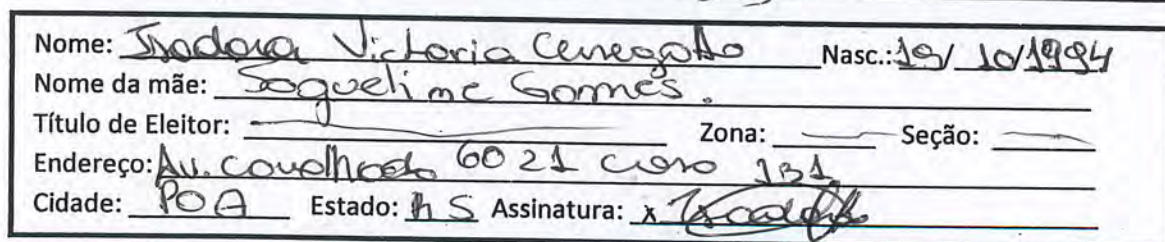 Nome: Isadora Victoria Cenegatto Nasc.: 19/10/1994
Nome da mãe: Joqueline Gomes.
Título de Eleitor: Zona: Seção:
Endereço: Av. 6021 casa 131
Cidade: POA Estado: RS Assinatura: x